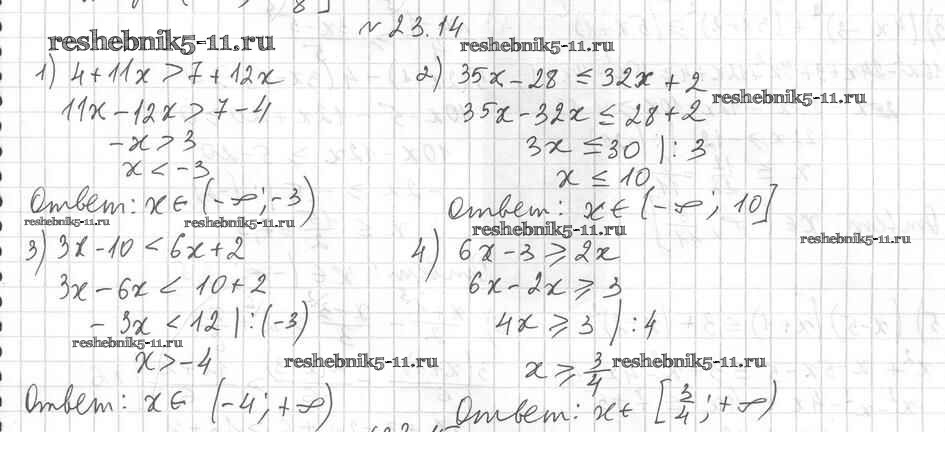 № 23.14
reshebnik5-11.ru
reshebnik5-11.ru
1) 4+11x > 7+12x
11x-12x > 7-4
-x > 3
x < -3
Ответ: x ∈ (-∞; -3)
reshebnik5-11.ru
reshebnik5-11.ru
2) 35x-28 ≤ 32x+2
reshebnik5-11.ru
35x-32x ≤ 28+2
3x ≤ 30 |:3
x ≤ 10
Ответ: x ∈ (-∞; 10]
reshebnik5-11.ru
reshebnik5-11.ru
3) 3x-10 < 6x+2
3x-6x < 10+2
-3x < 12 |:(-3)
reshebnik5-11.ru
x > -4
reshebnik5-11.ru
Ответ: x ∈ (-4; +∞)
4) 6x-3 ≥ 2x
6x-2x ≥ 3
4x ≥ 3 |:4
x ≥ 3/4
reshebnik5-11.ru
Ответ: x ∈ [3/4; +∞)